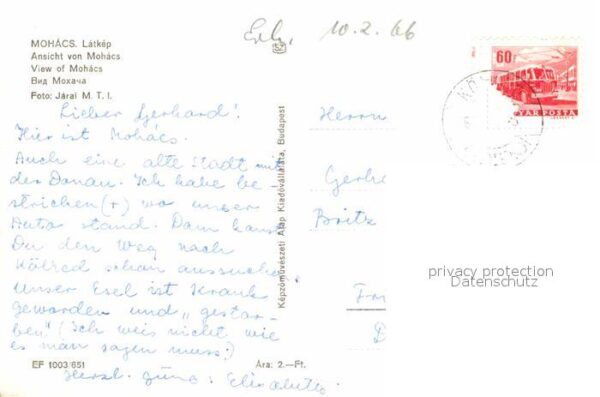 Erh. 10.2.66
MOHÁCS. Látkép
Ansicht von Mohács
View of Mohács
Вид Мохача
Foto: Járai M. T. I.
60f
YAR POSTA
Lieber Gerhard!
Hier ist Mohács.
Auch eine alte Stadt
der Donau. Ich habe be-
strichen (+) wo unser
Auto stand. Dann kannst
Du den Weg nach
schon aussuche
Unser Esel ist Krank
geworden und „gestor-
ben" (Ich weis nicht wie
es man sagen muss?)
Herzl. Elisabeth
EF 1003/651
Ára: 2.—Ft.
Képzőművészeti Alap Kiadóvállalata, Budapest
Herrn
Gerha
Britz
Fr
D
privacy protection
Datenschutz